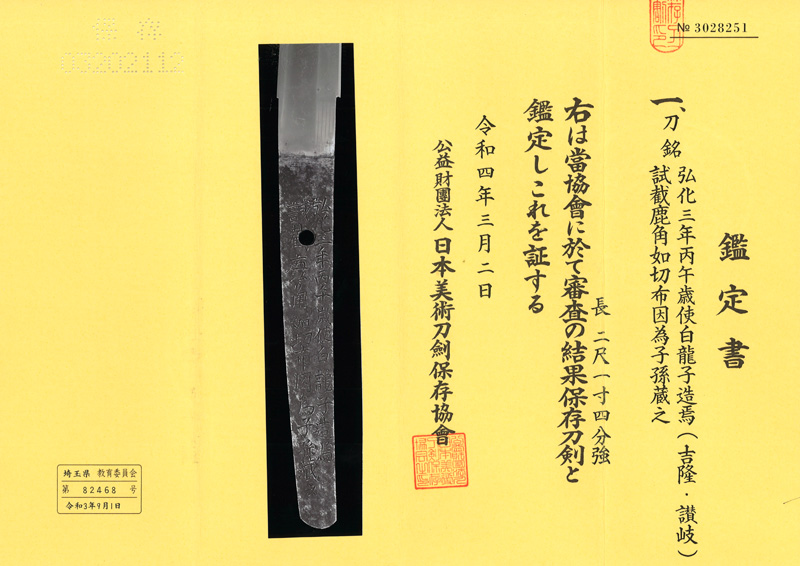 № 3028251
鑑定書
一、刀 銘 弘化三年丙午歳使白龍子造焉(吉隆・讃岐)
試截鹿角如切布因為子孫蔵之
長 二尺一寸四分強
右は當協會に於て審査の結果保存刀剣と
鑑定しこれを証する
令和四年三月二日
公益財團法人 日本美術刀劍保存協會
保存
03202112
埼玉県 教育委員会
第 82468 号
令和3年9月1日